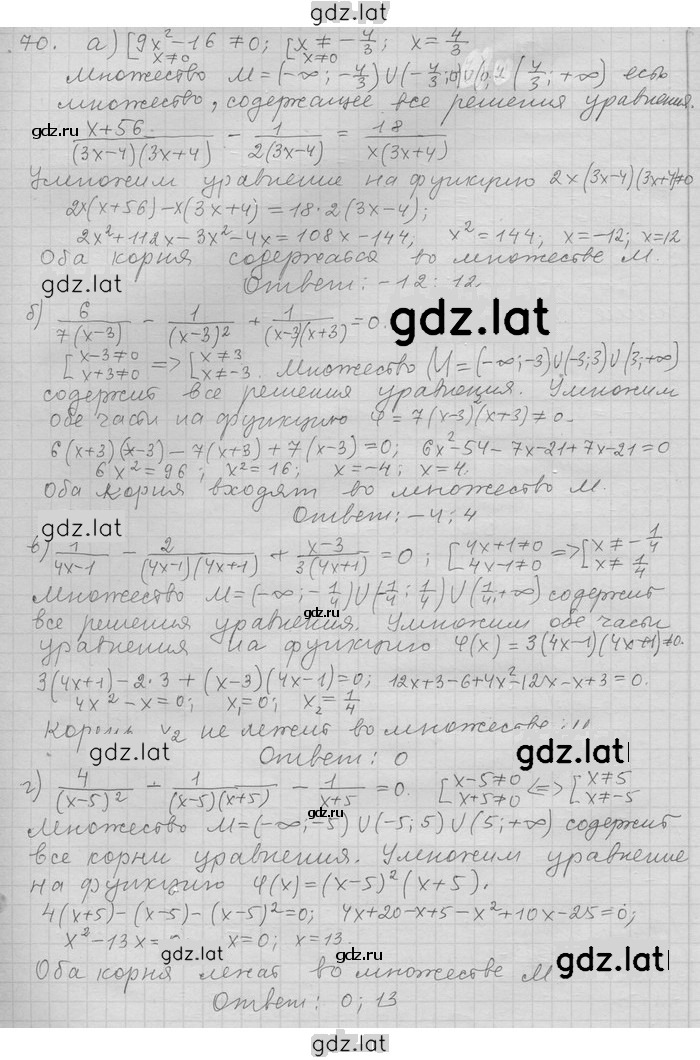 gdz.lat
70. а) [9x²-16 ≠0; x≠0 [x≠ -4/3; x= 4/3
множество M=(-∞; -4/3)∪(-4/3; 0)∪(0; 4/3; +∞) есть
множество, содержащее все решения уравнения.
gdz.lat
(x+56)/((3x-4)(3x+4)) - 1/(2(3x-4)) = 18/(x(3x+4))
Умножим уравнение на функцию 2x(3x-4)(3x+4)≠0
2x(x+56)-x(3x+4)=18·2(3x-4);
2x²+112x-3x²-4x=108x-144; x²=144; x=-12; x=12
Оба корня содержатся во множестве M.
gdz.lat
Ответ: -12; 12.
gdz.lat
б) 6/(7(x-3)) - 1/(x-3)² + 1/((x-3)(x+3)) =0.
[x-3≠0 x+3≠0 => [x≠3 x≠-3. Множество M=(-∞;-3)∪(-3;3)∪(3;+∞)
содержит все решения уравнения. Умножим
обе части на функцию φ=7(x-3)²(x+3)≠0.
6(x+3)(x-3)-7(x+3)+7(x-3)=0; 6x²-54-7x-21+7x-21=0
6x²=96; x²=16; x=-4; x=4.
Оба корня входят во множество M.
gdz.lat
Ответ: -4; 4
в) 1/(4x-1) - 2/((4x-1)(4x+1)) + (x-3)/(3(4x+1)) =0; [4x+1≠0 4x-1≠0 => [x≠-1/4 x≠1/4
gdz.lat
множество M=(-∞;-1/4)∪(-1/4; 1/4)∪(1/4; +∞) содержит
gdz.lat
все решения уравнения. Умножим обе части
уравнения на функцию φ(x)=3(4x-1)(4x+1)≠0.
3(4x+1)-2·3+(x-3)(4x-1)=0; 12x+3-6+4x²-12x-x+3=0.
4x²-x=0; x₁=0; x₂=1/4
Корень x₂ не лежит во множестве
gdz.lat
Ответ: 0
gdz.lat
г) 4/(x-5)² - 1/((x-5)(x+5)) - 1/(x+5) =0. [x-5≠0 x+5≠0 <=> [x≠5 x≠-5
gdz.lat
Множество M=(-∞;-5)∪(-5;5)∪(5;+∞) содержит
все корни уравнения. Умножим уравнение
на функцию φ(x)=(x-5)²(x+5).
4(x+5)-(x-5)-(x-5)²=0; 4x+20-x+5-x²+10x-25=0;
x²-13x= x=0; x=13.
gdz.lat
gdz.lat
Оба корня лежат во множестве M
Ответ: 0; 13
gdz.lat